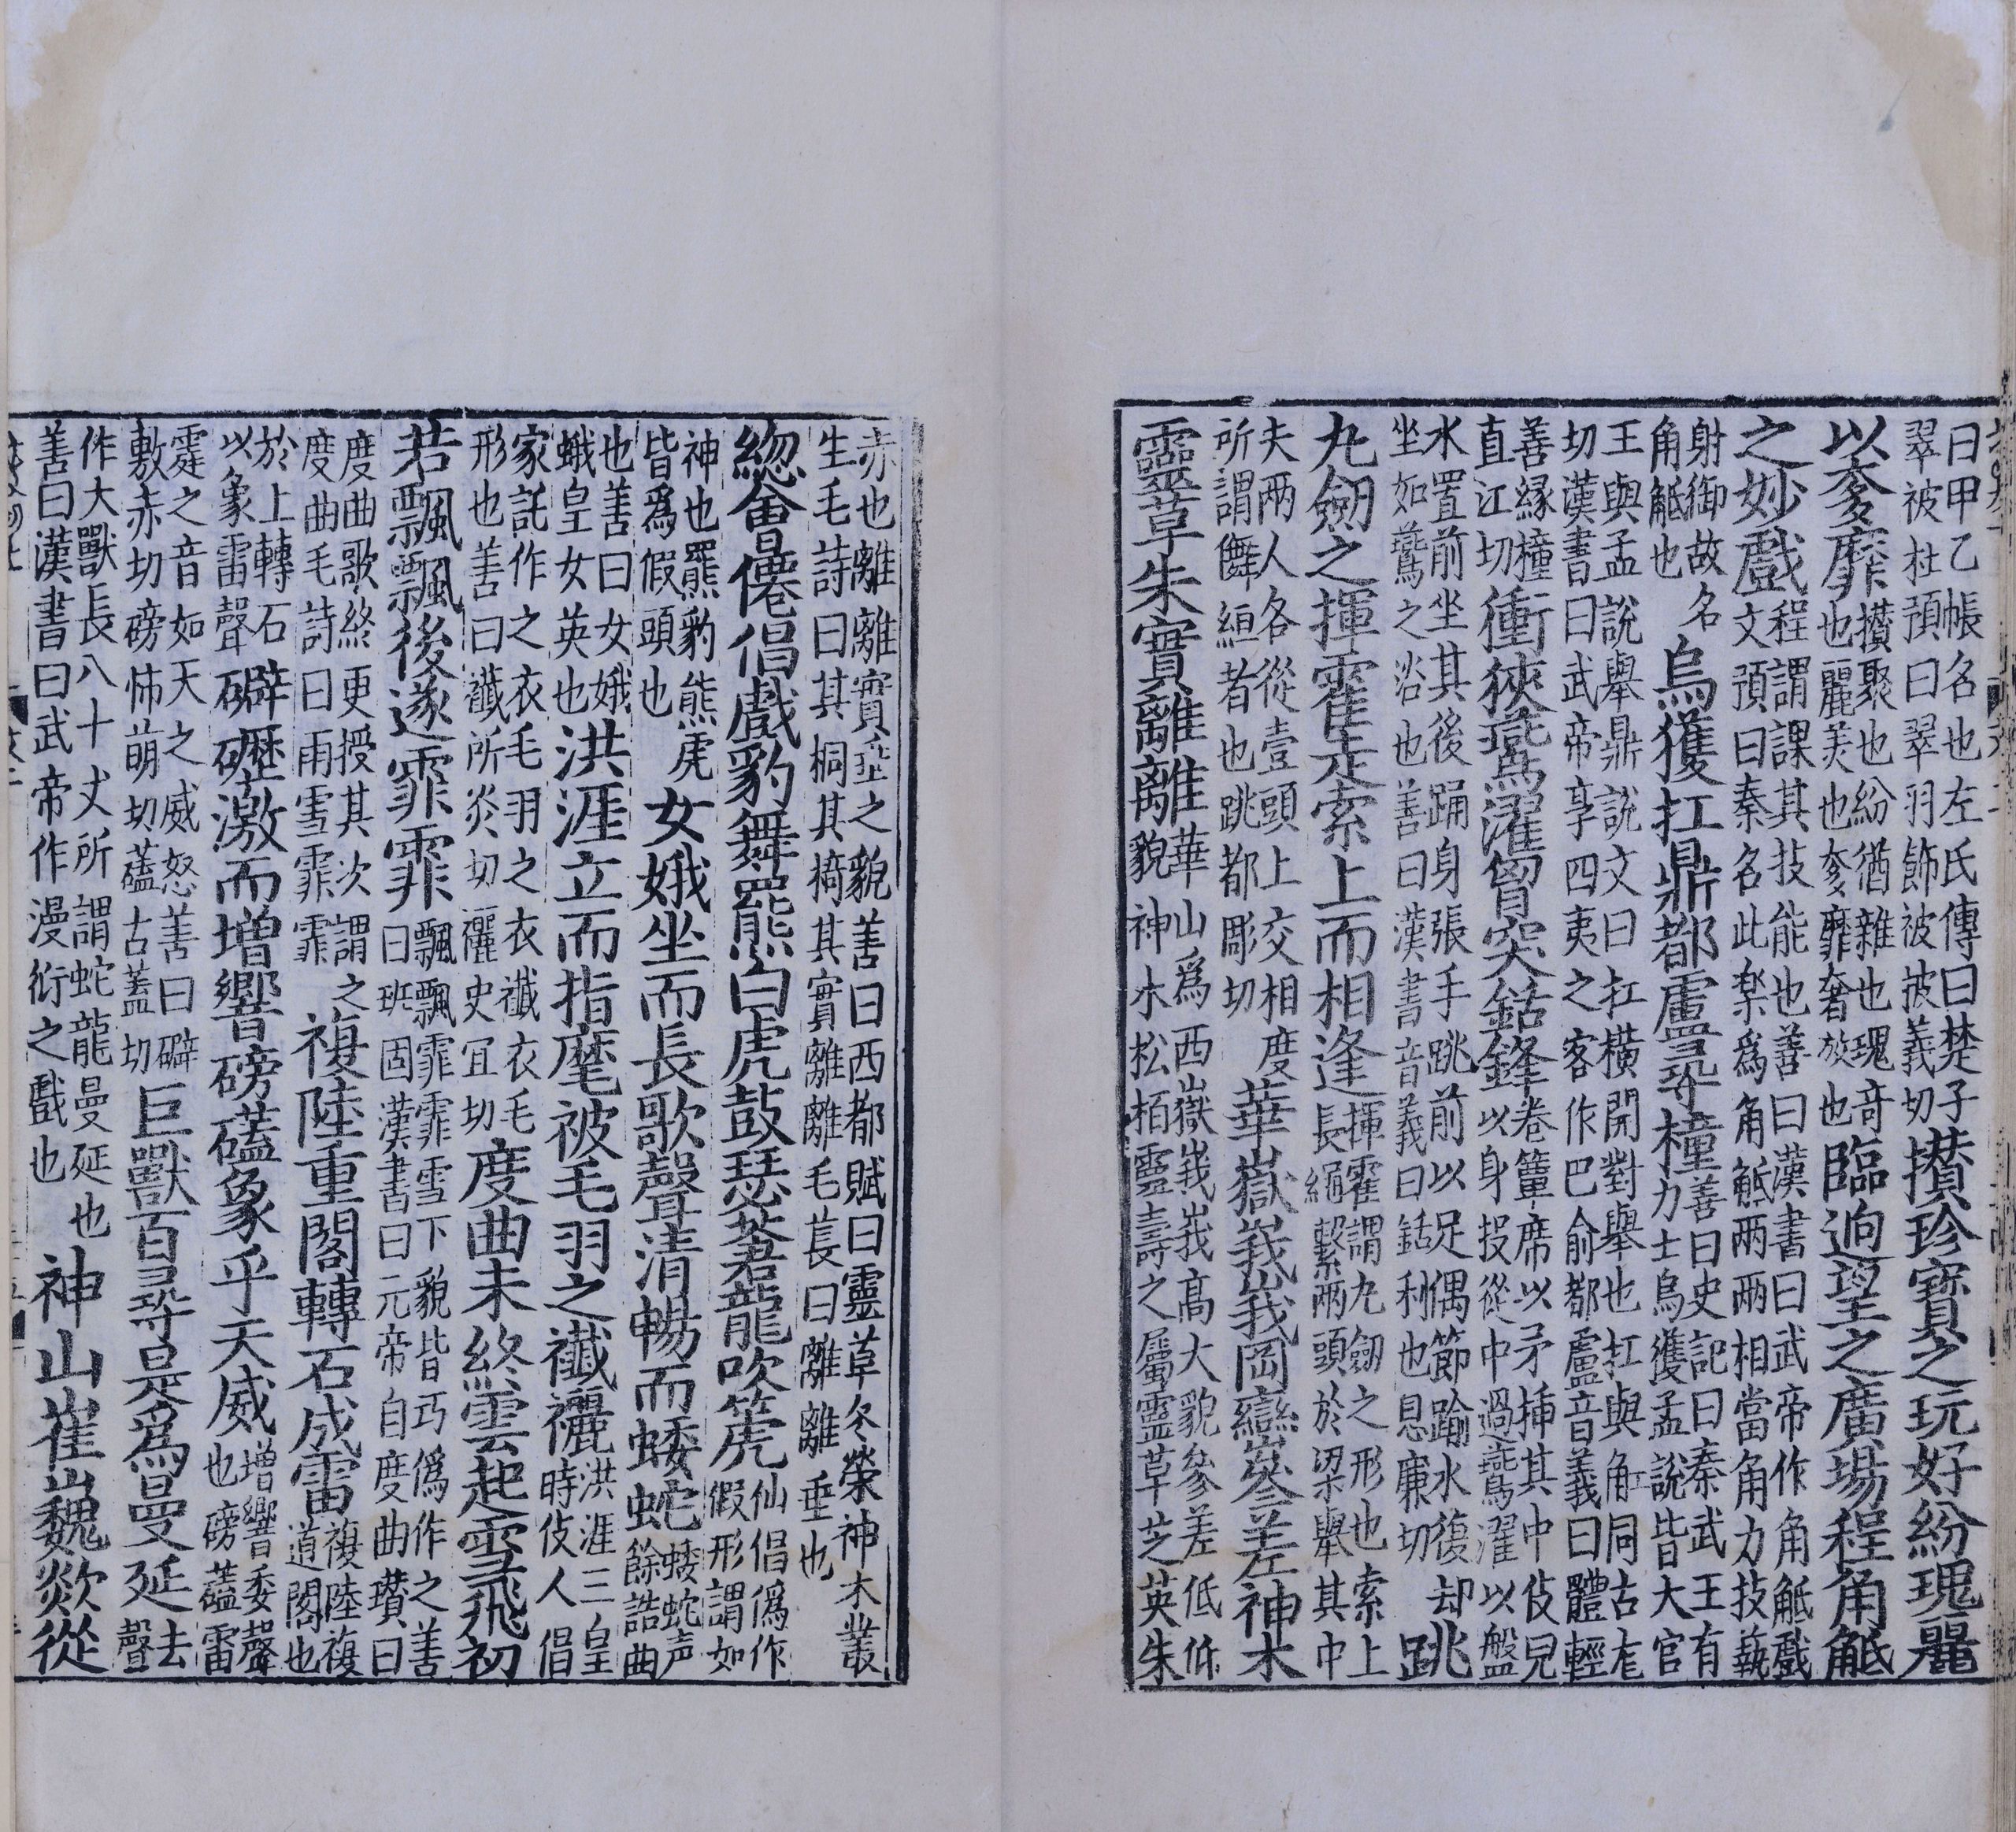 曰甲乙帳名也左氏傳曰楚子
翠被杜預曰翠羽飾被披義切
攅珍寶之玩好紛瑰麗
以奓靡
攅聚也紛猶雜也瑰奇
也麗美也奓靡奢放也
臨迥望之廣場程角觝
之妙戲
程謂課其技能也善曰漢書曰武帝作角觝戲
文頴曰秦名此樂爲角觝兩兩相當角力技藝
射御故名
角觝也
烏獲扛鼎都盧尋橦
善曰史記曰秦武王有
力士烏獲孟說皆大官
王與孟說舉鼎說文曰扛橫開對舉也扛與舡同古尨
切漢書曰武帝享四夷之客作巴俞都盧音義曰體輕
善緣橦
直江切
衝狹鷰濯胷突銛鋒
卷簟席以矛揷其中伎兒
以身投從中過鷰濯以盤
水置前坐其後踊身張手跳前以足偶節踰水復却
坐如鷰之浴也善曰漢書音義曰銛利也息廉切
跳
丸劒之揮霍走索上而相逢
揮霍謂丸劒之形也索上
長繩繫兩頭於梁舉其中
夫兩人各從壹頭上交相度
所謂儛絙者也跳都彫切
華嶽峩峩岡巒嵾差神木
靈草朱實離離
華山爲西嶽峩峩高大貌參差低仰
貌神木松栢靈壽之屬靈草芝英朱
赤也離離實垂之貌善曰西都賦曰靈草冬榮神木叢
生毛詩曰其桐其椅其實離離毛萇曰離離垂也
緫會僊倡戲豹舞羆白虎鼓瑟蒼龍吹篪
仙倡僞作
假形謂如
神也羆豹熊虎
皆爲假頭也
女娥坐而長歌聲清暢而蜲蛇
蜲蛇声
餘詰曲
也善曰女娥
蛾皇女英也
洪涯立而指麾被毛羽之襳襹
洪涯三皇
時伎人倡
家託作之衣毛羽之衣襳衣毛
形也善曰襳所炎切襹史冝切
度曲未終雲起雪飛初
若飄飄後遂霏霏
飄飄霏霏雪下貌皆巧僞作之善
曰班固漢書曰元帝自度曲瓚曰
度曲歌終更授其次謂之
度曲毛詩曰雨雪霏霏
複陸重閣轉石成雷
複陸複
道閣也
於上轉石
以象雷聲
礔礰激而增響磅礚象乎天威
增響委聲
也磅礚雷
霆之音如天之威怒善曰礔
敷赤切磅怖萌切礚古蓋切
巨獸百尋是爲曼延
去
聲
作大獸長八十丈所謂蛇龍曼延也
善曰漢書曰武帝作漫衍之戲也
神山崔巍欻從